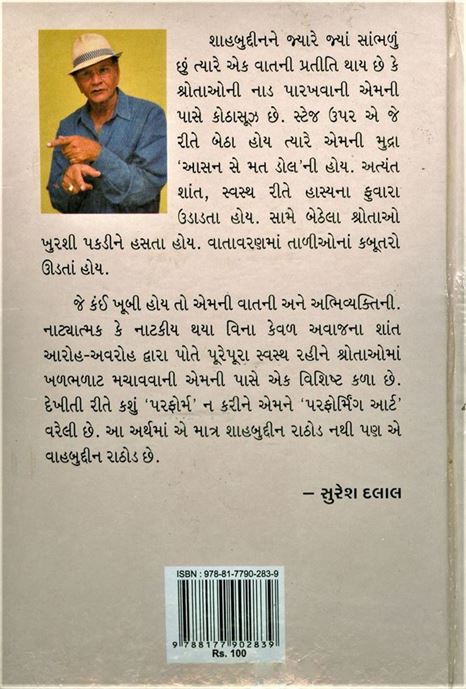 શાહબુદ્દીનને જ્યારે જ્યાં સાંભળું
છું ત્યારે એક વાતની પ્રતીતિ થાય છે કે
શ્રોતાઓની નાડ પારખવાની એમની
પાસે કોઠાસૂઝ છે. સ્ટેજ ઉપર એ જે
રીતે બેઠા હોય ત્યારે એમની મુદ્રા
‘આસન સે મત ડોલ’ની હોય. અત્યંત
શાંત, સ્વસ્થ રીતે હાસ્યના ફુવારા
ઉડાડતા હોય. સામે બેઠેલા શ્રોતાઓ
ખુરશી પકડીને હસતા હોય. વાતાવરણમાં તાળીઓનાં કબૂતરો
ઊડતાં હોય.
જે કંઈ ખૂબી હોય તો એમની વાતની અને અભિવ્યક્તિની.
નાટ્યાત્મક કે નાટકીય થયા વિના કેવળ અવાજના શાંત
આરોહ-અવરોહ દ્વારા પોતે પૂરેપૂરા સ્વસ્થ રહીને શ્રોતાઓમાં
ખળભળાટ મચાવવાની એમની પાસે એક વિશિષ્ટ કળા છે.
દેખીતી રીતે કશું ‘પરફોર્મ’ ન કરીને એમને ‘પરફોર્મિંગ આર્ટ’
વરેલી છે. આ અર્થમાં એ માત્ર શાહબુદ્દીન રાઠોડ નથી પણ એ
વાહબુદ્દીન રાઠોડ છે.
– સુરેશ દલાલ
ISBN : 978-81-7790-283-9
9 788177 902839
Rs. 100